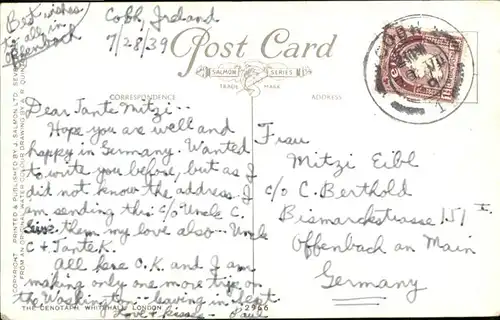 Best wishes
to all in
Offenbach
Cobh, Ireland
7/28/39
Post Card
SALMON SERIES
TRADE MARK
CORRESPONDENCE
ADDRESS
Dear Tante Mitzi --
Hope you are well and
happy in Germany. Wanted
to write you before, but as I
did not know the address I
am sending this c/o Uncle C.
Give them my love also -- Uncle
C + Tante K.
All here O.K. and I am
making only one more trip on
the Washington -- leaving in Sept
Love + kisses -- Paul
Frau
Mitzi Eibl
c/o C. Berthold
Bismarckstrasse 151 I
Offenbach am Main
Germany
THE CENOTAPH, WHITEHALL, LONDON
2966
COPYRIGHT. PRINTED & PUBLISHED BY J. SALMON LTD. SEV
FROM AN ORIGINAL WATER COLOUR DRAWING BY A. R. QUIN